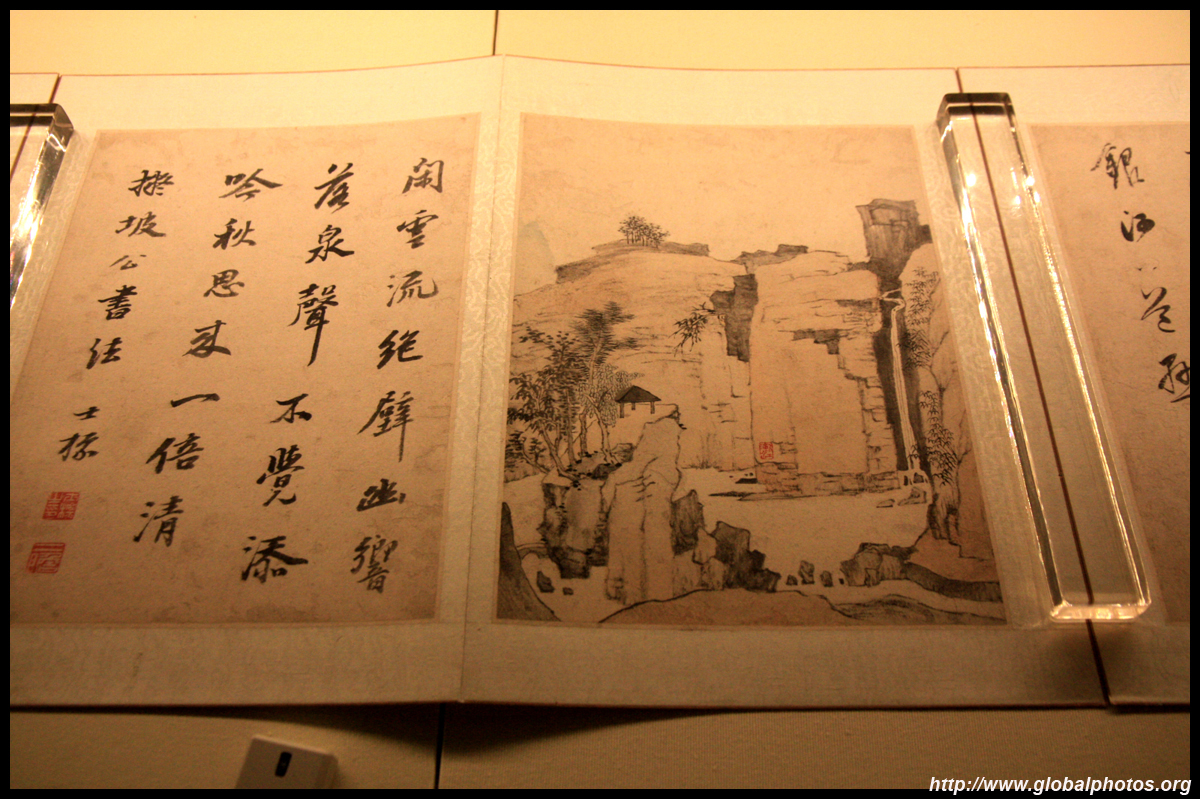 銀河
閑雲流絕壁幽響
落泉聲不覺添
吟秋思來一倍清
擬坡公書法 士標
http://www.globalphotos.org